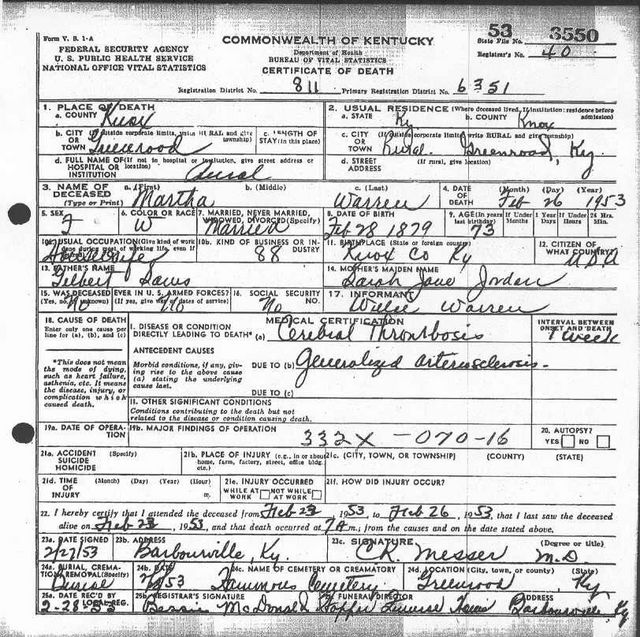 Form V. S. 1-A
COMMONWEALTH OF KENTUCKY
53 3550
State File No.
FEDERAL SECURITY AGENCY
U. S. PUBLIC HEALTH SERVICE
NATIONAL OFFICE VITAL STATISTICS
Department of Health
BUREAU OF VITAL STATISTICS
CERTIFICATE OF DEATH
Registrar's No. 40
Registration District No. 811 Primary Registration District No. 6351
1. PLACE OF DEATH
a. COUNTY Knox
2. USUAL RESIDENCE (Where deceased lived, If institution: residence before admission)
a. STATE Ky b. COUNTY Knox
b. CITY (If outside corporate limits, write RURAL and give township)
OR TOWN Greenroad
c. LENGTH OF STAY (in this place)
c. CITY (If outside corporate limits, write RURAL and give township)
OR TOWN Rural. Greenroad, Ky.
d. FULL NAME OF (If not in hospital or institution, give street address or location)
HOSPITAL OR INSTITUTION Rural
d. STREET ADDRESS (If rural, give location)
3. NAME OF DECEASED (Type or Print)
a. (First) Martha b. (Middle) c. (Last) Warren
4. DATE OF DEATH (Month) (Day) (Year) Feb 26 1953
5. SEX F
6. COLOR OR RACE W
7. MARRIED, NEVER MARRIED, WIDOWED, DIVORCED (Specify) Married
8. DATE OF BIRTH Feb 28 1879
9. AGE (In years last birthday) 73
10a. USUAL OCCUPATION (Give kind of work done during most of working life, even if retired) Housewife
10b. KIND OF BUSINESS OR INDUSTRY 88
11. BIRTHPLACE (State or foreign country) Knox Co Ky
12. CITIZEN OF WHAT COUNTRY? USA
13. FATHER'S NAME
14. MOTHER'S MAIDEN NAME Sarah Jane Jordan
15. WAS DECEASED EVER IN U.S. ARMED FORCES? (Yes, no, or unknown) (If yes, give war or dates of service) No No
16. SOCIAL SECURITY NO. No
17. INFORMANT Warren
18. CAUSE OF DEATH
Enter only one cause per line for (a), (b), and (c)
MEDICAL CERTIFICATION
INTERVAL BETWEEN ONSET AND DEATH
I. DISEASE OR CONDITION
DIRECTLY LEADING TO DEATH* (a) Cerebral Thrombosis 1 week
*This does not mean the mode of dying, such as heart failure, asthenia, etc. It means the disease, injury, or complication which caused death.
ANTECEDENT CAUSES
Morbid conditions, if any, giving rise to the above cause (a) stating the underlying cause last.
DUE TO (b) Generalized arteriosclerosis
DUE TO (c)
II. OTHER SIGNIFICANT CONDITIONS
Conditions contributing to the death but not related to the disease or condition causing death.
19a. DATE OF OPERATION
19b. MAJOR FINDINGS OF OPERATION
332X - 070 - 16
20. AUTOPSY?
YES NO
21a. ACCIDENT SUICIDE HOMICIDE (Specify)
21b. PLACE OF INJURY (e.g., in or about home, farm, factory, street, office bldg., etc.)
21c. (CITY, TOWN, OR TOWNSHIP) (COUNTY) (STATE)
21d. TIME OF INJURY (Month) (Day) (Year) (Hour)
21e. INJURY OCCURRED
WHILE AT WORK NOT WHILE AT WORK
21f. HOW DID INJURY OCCUR?
22. I hereby certify that I attended the deceased from Feb 23, 1953 to Feb 26, 1953, that I last saw the deceased
alive on Feb 23, 1953, and that death occurred at 7A m., from the causes and on the date stated above.
23a. DATE SIGNED 2/27/53
23b. ADDRESS Barbourville, Ky.
23c. SIGNATURE C.R. Messer (Degree or title) M.D
24a. BURIAL, CREMATION, REMOVAL (Specify) Burial
24b. DATE
24c. NAME OF CEMETERY OR CREMATORY Cemetery
24d. LOCATION (City, town, or county) (State) Greenroad Ky
25a. DATE REC'D BY LOCAL REG. 2-28-53
25b. REGISTRAR'S SIGNATURE Bessie McDonald
FUNERAL DIRECTOR Hopper Funeral Home
ADDRESS Barbourville, Ky